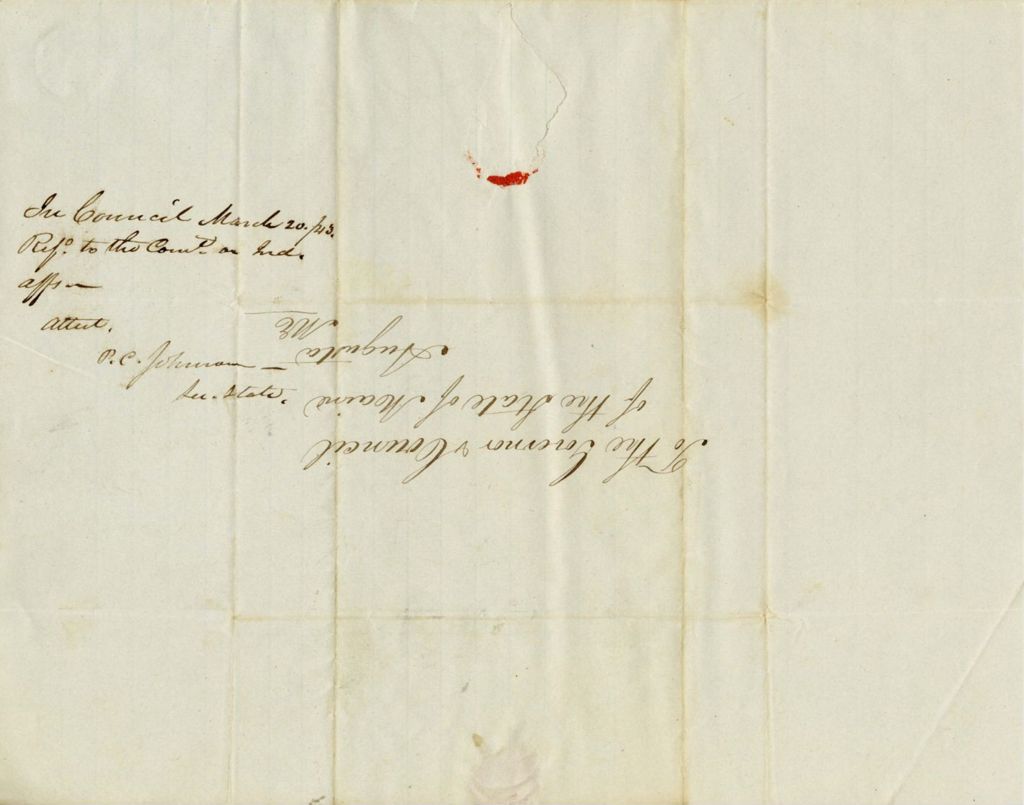 In Council March 20. /43.
Refd. to the Comte. on Ind.
affs —
Attest.
P. C. Johnson —
Sec. State.
To the Governor & Council
of the State of Maine
Augusta
Me